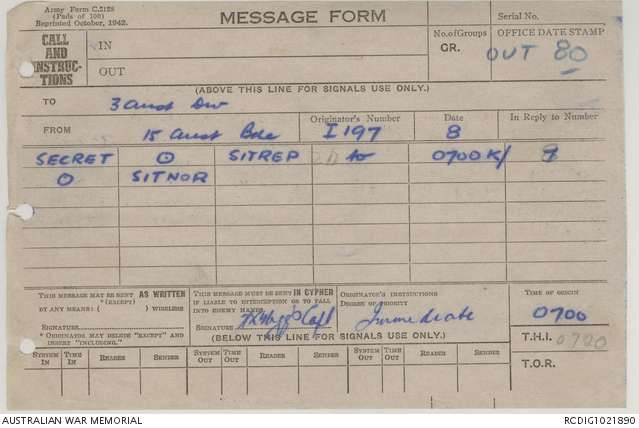 Army Form C.2128
(Pads of 100)
Reprinted October, 1942.
MESSAGE FORM
Serial No.
CALL AND INSTRUC-TIONS
IN
OUT
No. of Groups
GR.
OFFICE DATE STAMP
OUT 80
(ABOVE THIS LINE FOR SIGNALS USE ONLY.)
TO 3 Aust Div
FROM 15 Aust Bde
Originator's Number I 197
Date 8
In Reply to Number
SECRET O SITREP to 0700K/ 9
O SITNOR
THIS MESSAGE MAY BE SENT AS WRITTEN
*(EXCEPT)
BY ANY MEANS: ( ) WIRELESS
SIGNATURE
* ORIGINATOR MAY DELETE "EXCEPT" AND INSERT "INCLUDING."
THIS MESSAGE MUST BE SENT IN CYPHER
IF LIABLE TO INTERCEPTION OR TO FALL
INTO ENEMY HANDS.
SIGNATURE Capt
ORIGINATOR'S INSTRUCTIONS
DEGREE OF PRIORITY
Immediate
TIME OF ORIGIN
0700
(BELOW THIS LINE FOR SIGNALS USE ONLY.)
T.H.I. 0720
SYSTEM IN TIME IN READER SENDER SYSTEM OUT TIME OUT READER SENDER SYSTEM OUT TIME OUT READER SENDER
T.O.R.
AUSTRALIAN WAR MEMORIAL
RCDIG1021890